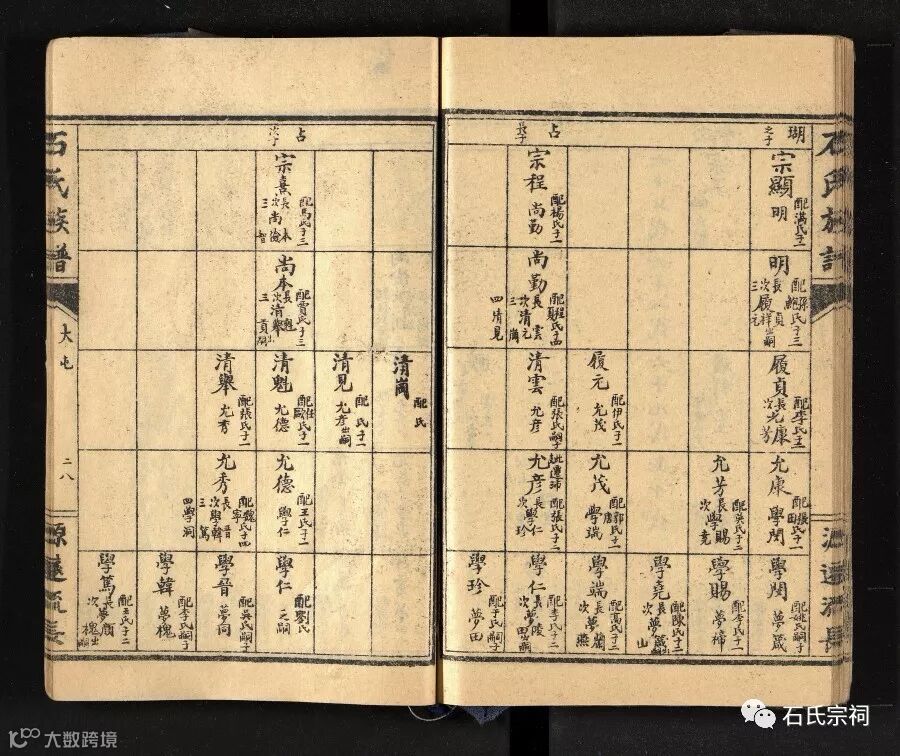 石氏族譜
源遠流長
瑚之子
宗顯
配滿氏子一
明
明
配孫氏子三
長履貞
次履祥出嗣
三履元
履貞
配李氏子二
長允康
次允芳
允康
學閔
允芳
配英氏子二
長學賜
次學堯
學閔
配姚氏嗣子
夢箴
學賜
配李氏子一
夢禘
學堯
配陳氏子二
次夢山
履元
配伊氏子一
允茂
允茂
學瑞
學端
配萬氏子二
長夢蘭
次夢燕
占長子
宗程
配楊氏子一
尚勤
尚勤
長清雲
次清元
三清崗
四清見
清雲
配張氏嗣子
允彦
允彦
配張氏子二
長學仁
次學珍
學仁
配李氏子二
長夢陵
次夢田出嗣
學珍
配于氏嗣子
夢田
占次子
宗熹
配馬氏子三
長尚本
次尚儉
三尚智
尚本
配賈氏子三
長清魁
次清舉
三清貢出嗣
清崗
配氏
清見
配氏子一
允彦出嗣
清魁
允德
清舉
配張氏子一
允秀
允德
配王氏子一
學仁
允秀
配魏氏子四
長學晉
次學韓
三學篤
四學洞
學仁
配劉氏
之嗣
學晉
配吳氏嗣子
夢同
學韓
配李氏嗣子
夢槐
學篤
配王氏子二
長夢蘭
次夢槐出嗣
石氏族譜
大屯
二八
源遠流長
石氏宗祠
大数跨境